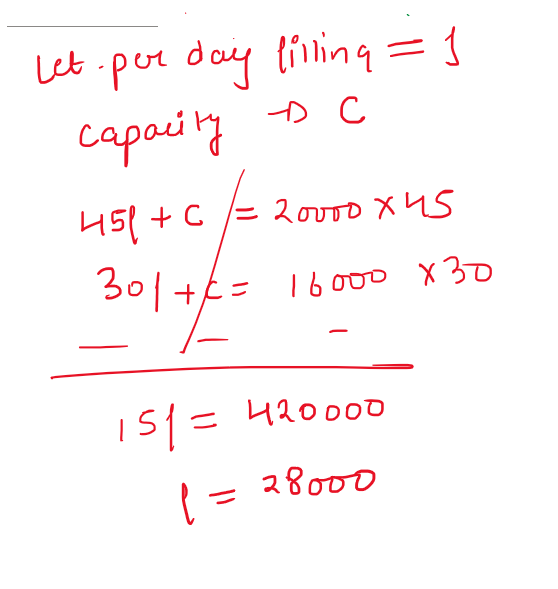 Let per day filling = f
capacity → C
45f + C = 20000 × 45
30f + C = 16000 × 30
— — —
15f = 420000
f = 28000